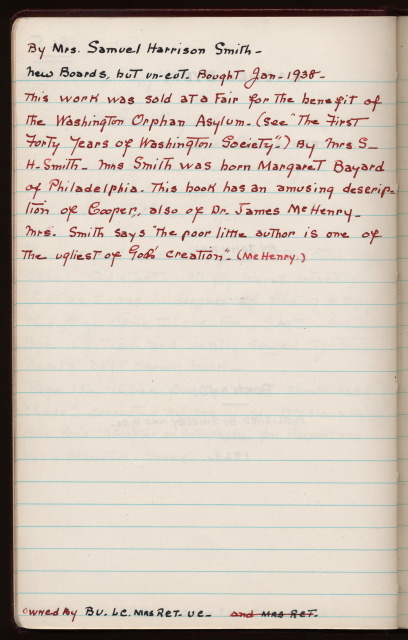 By Mrs. Samuel Harrison Smith-
New Boards, but un-cut. Bought Jan-1938-
This work was sold at a Fair for the benefit of
the Washington Orphan Asylum- (see "The First
Forty Years of Washington Society".) By Mrs S-
H-Smith- Mrs Smith was born Margaret Bayard
of Philadelphia. This book has an amusing descrip=
tion of Cooper, also of Dr. James McHenry-
Mrs. Smith says "the poor little author is one of
the ugliest of God's creation"- (McHenry.)
owned by BU. LC. MRS RET- UC- and MRS RET-